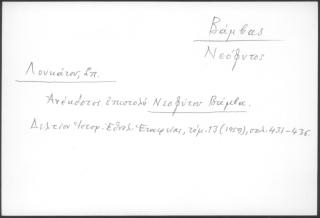 Βάμβας
Νεόφυτος
Λουκάτος, Σπ.
Ανέκδοτος ἐπιστολὴ Νεοφύτου Βάμβα.
Δελτίον Ἱστορ. Ἐθνολ. Ἑταιρείας, τόμ. 13 (1959), σελ. 431-436.